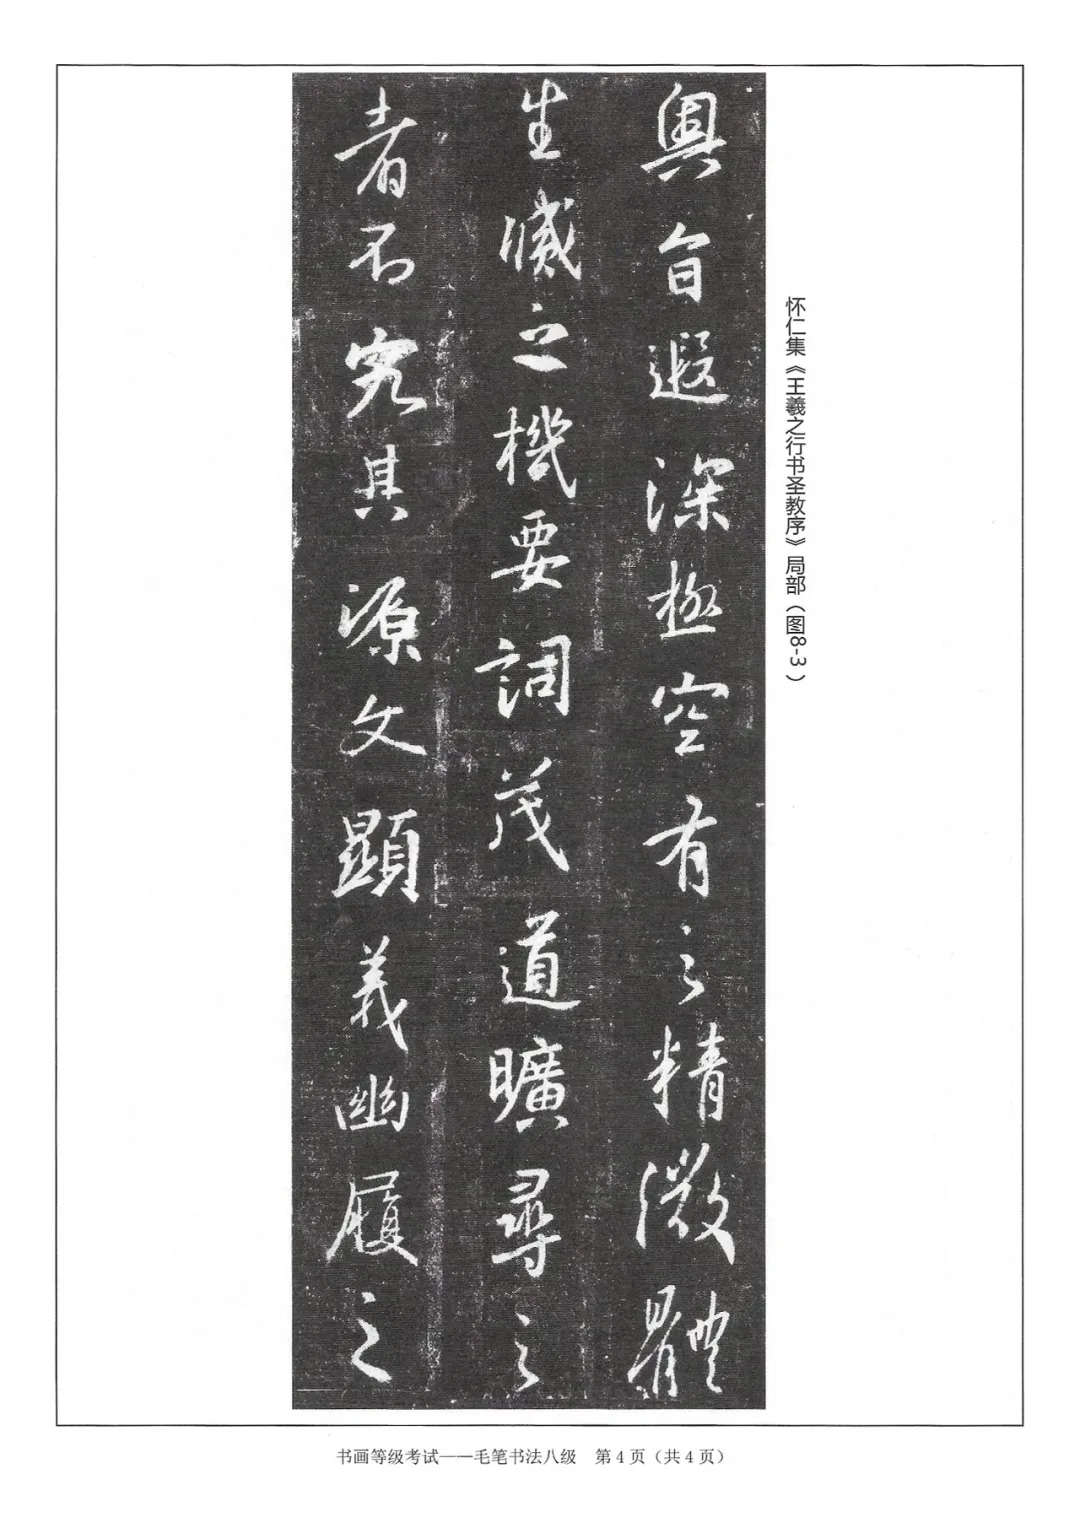 奥旨遐深極空有之精微體
生滅之機要詞茂道曠尋之
者不究其源文顯義幽履之
怀仁集《王羲之行书圣教序》局部（图8-3）
书画等级考试——毛笔书法八级　第4页（共4页）